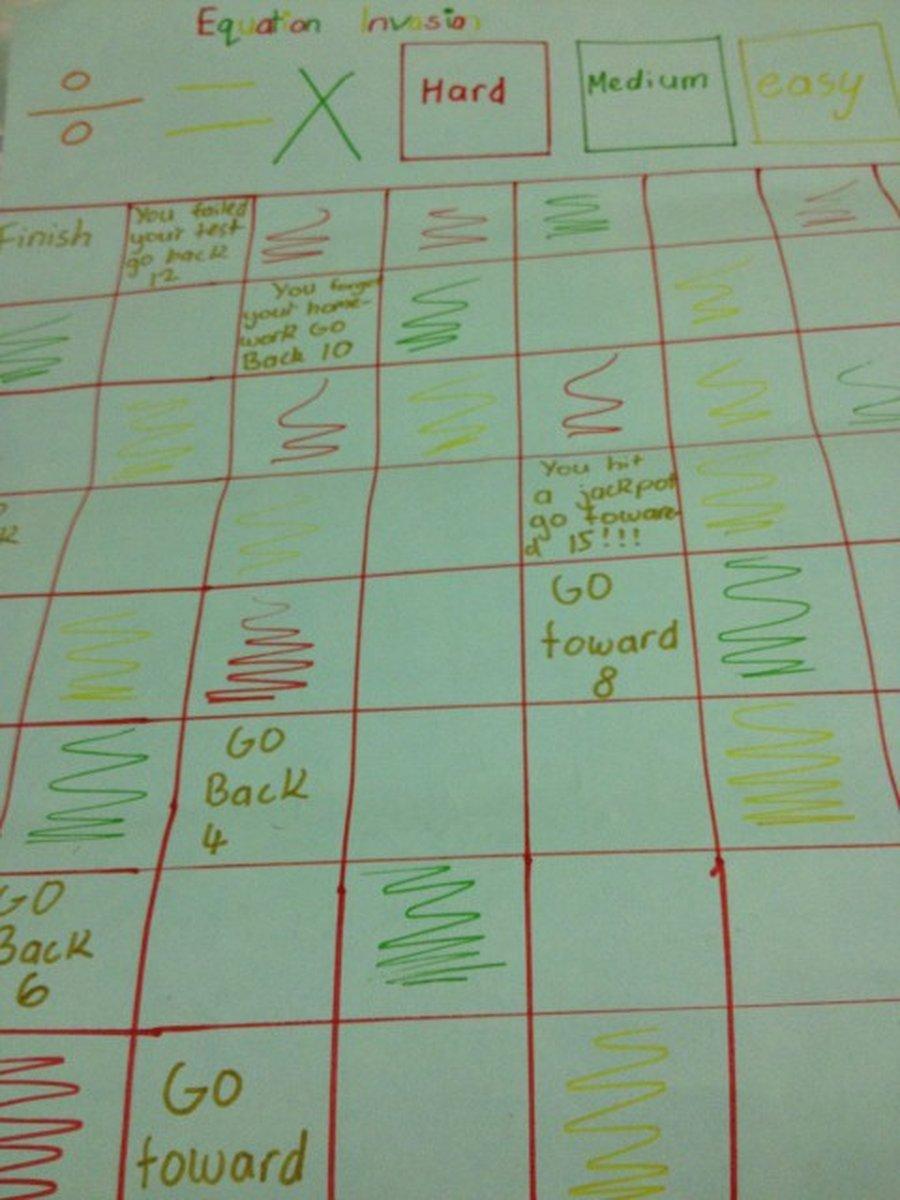 Equation Invasion
÷ = X
Hard
Medium
easy
Finish
You failed
your test
go back
12
You forgot
your home-
work GO
Back 10
You hit
a jackpot
go towar-
d 15!!!
GO
toward
8
GO
Back
4
GO
Back
6
GO
toward